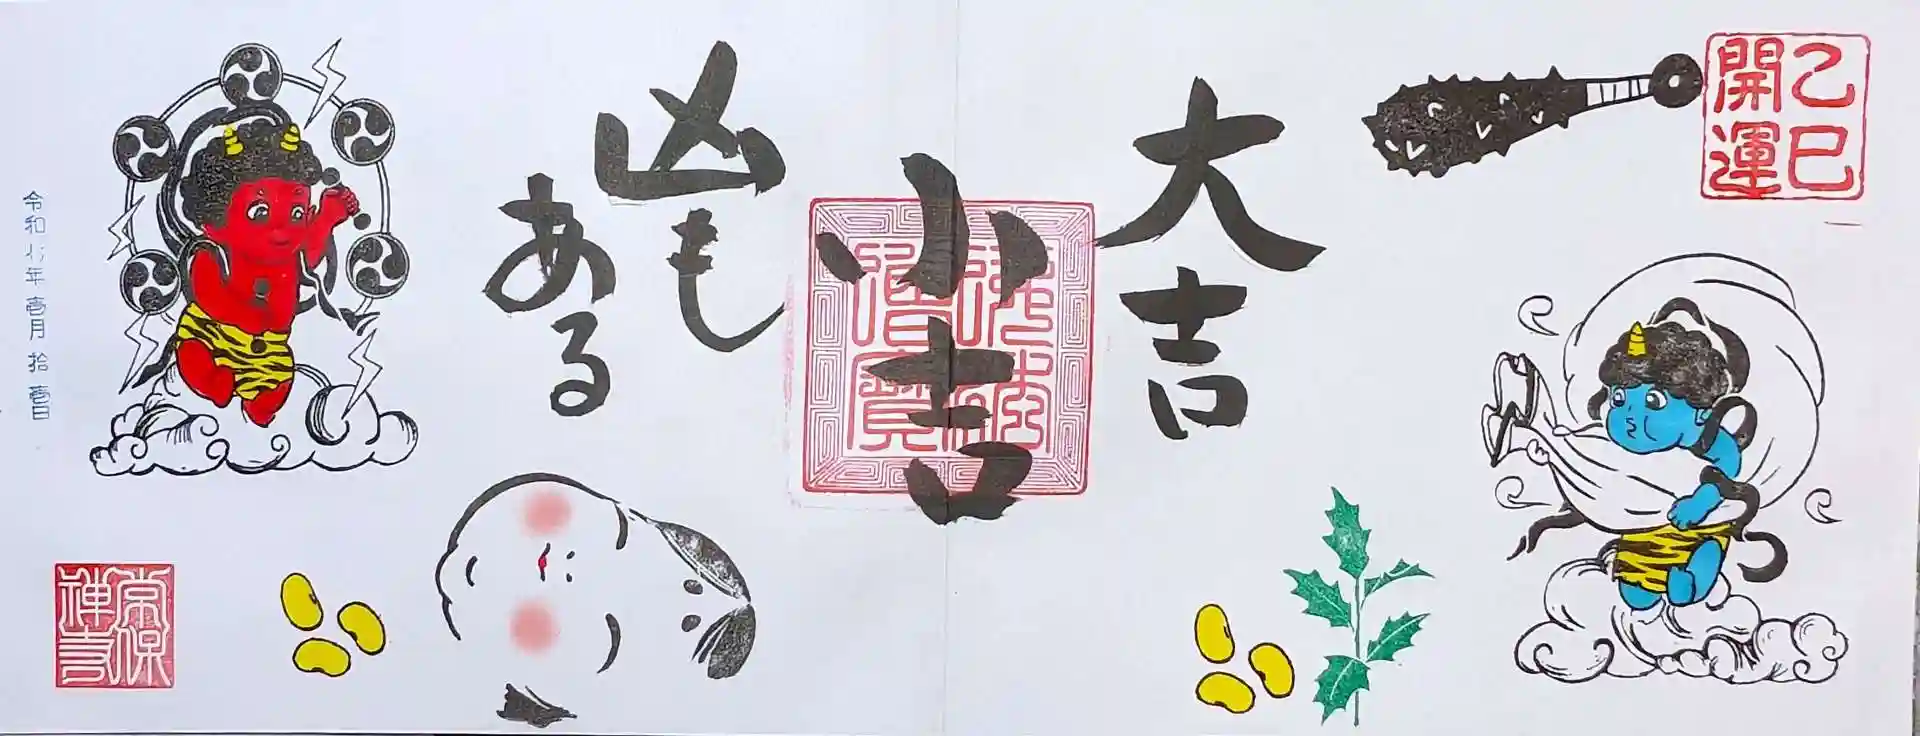 乙巳
開運
大吉
小吉
凶も
ある
常保
禅寺
令和七年壱月拾壱日